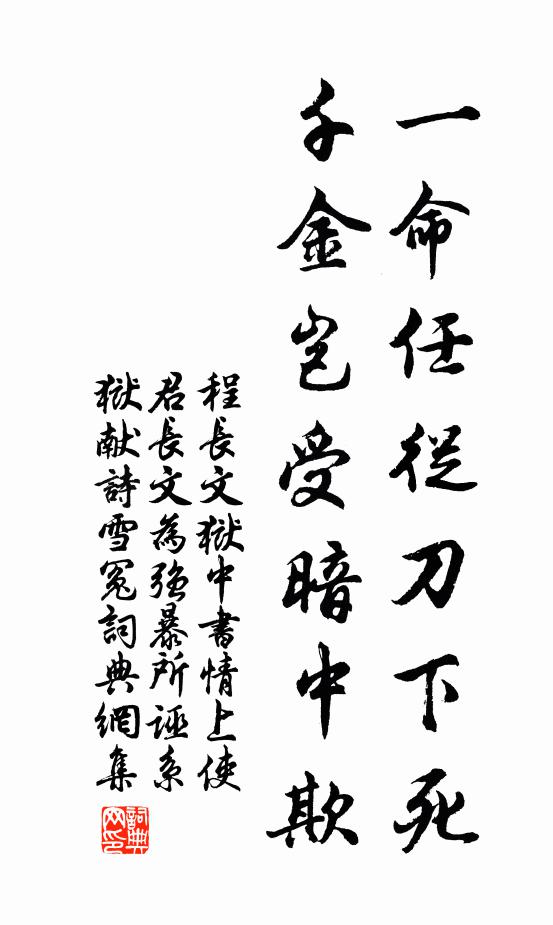 一命任從刀下死
千金豈受暗中欺
程長文獄中書情上使
君長文為強暴所誣系
獄献詩雪冤詞典網集
詞典
网印